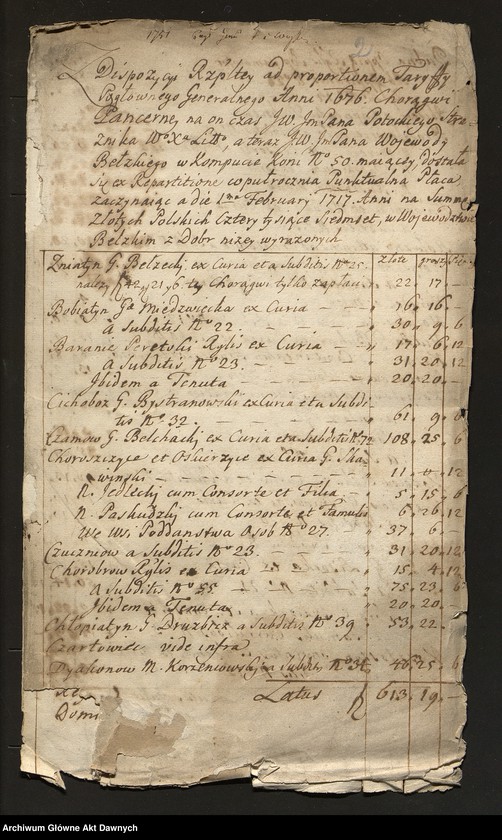 1751
2
Dispozycya Rzpltey ad proportionem Taryffy
Pogłownego Generalnego Anni 1676 Chorągwi
Pancerney na on czas J.W. JmPana Potockiego Stra-
żnika Wo Xa Litto a teraz J.W. JmPana Wojewody
Bełzkiego w Kompucie Koni No 50. maiącey, dostała
się ex Repartitione co pułrocznia Punktualna Płaca
zaczynaiąc a die 1ma February 1717. Anni na Summę
Złotych Polskich Cztery tysiące Siedmset, w Wojewodztwie
Bełzkim z Dobr niżey wyrazonych
złote groszy
Zniatyn G. Bełzecki ex Curia et a Subditis No 25.
należy 42 21 6 tey Chorągwi tylko zapłac. 22. 17. —
Bobiatyn Ga Miedzwiecka ex Curia 16. 16. —
a Subditis No 22. 30. 9. 6
Baranie Peretoki Rylis ex Curia 17. 6. 12
a Subditis No 23. 31. 20. 12
Ibidem a Tenuta 20. 20. —
Cichoboz G. Bystranowski ex Curia et a Subdi-
tis No 32. 61. 9. 0
Czamow G. Bełchacki ex Curia et a Subditis No 72 108. 25. 6
Choroszczyce et Oskierzyce ex Curia G. Ska-
winski 11. 0. 12
N. Jedlecki cum Consorte et Filia 5. 15. 6
N. Paskudzki cum Consorte et Famulis 6. 26. 12
We Wsi Poddanstwa Osob No 27. 37. 6. —
Czuczniow a Subditis No 23. 31. 20. 12
Chorobrow Rylis ex Curia 15. 4. 12
a Subditis No 55 75. 23. 6
Ibidem a Tenuta 20. 20. —
Chłopiatyn G. Druzbicz a Subditis No 39 53. 22. —
Czartowiec vide infra
Dyakonow N. Korzeniowski a Subditis No 34 46. 25. 6
Latus 613. 19. —
Domi
Archiwum Główne Akt Dawnych